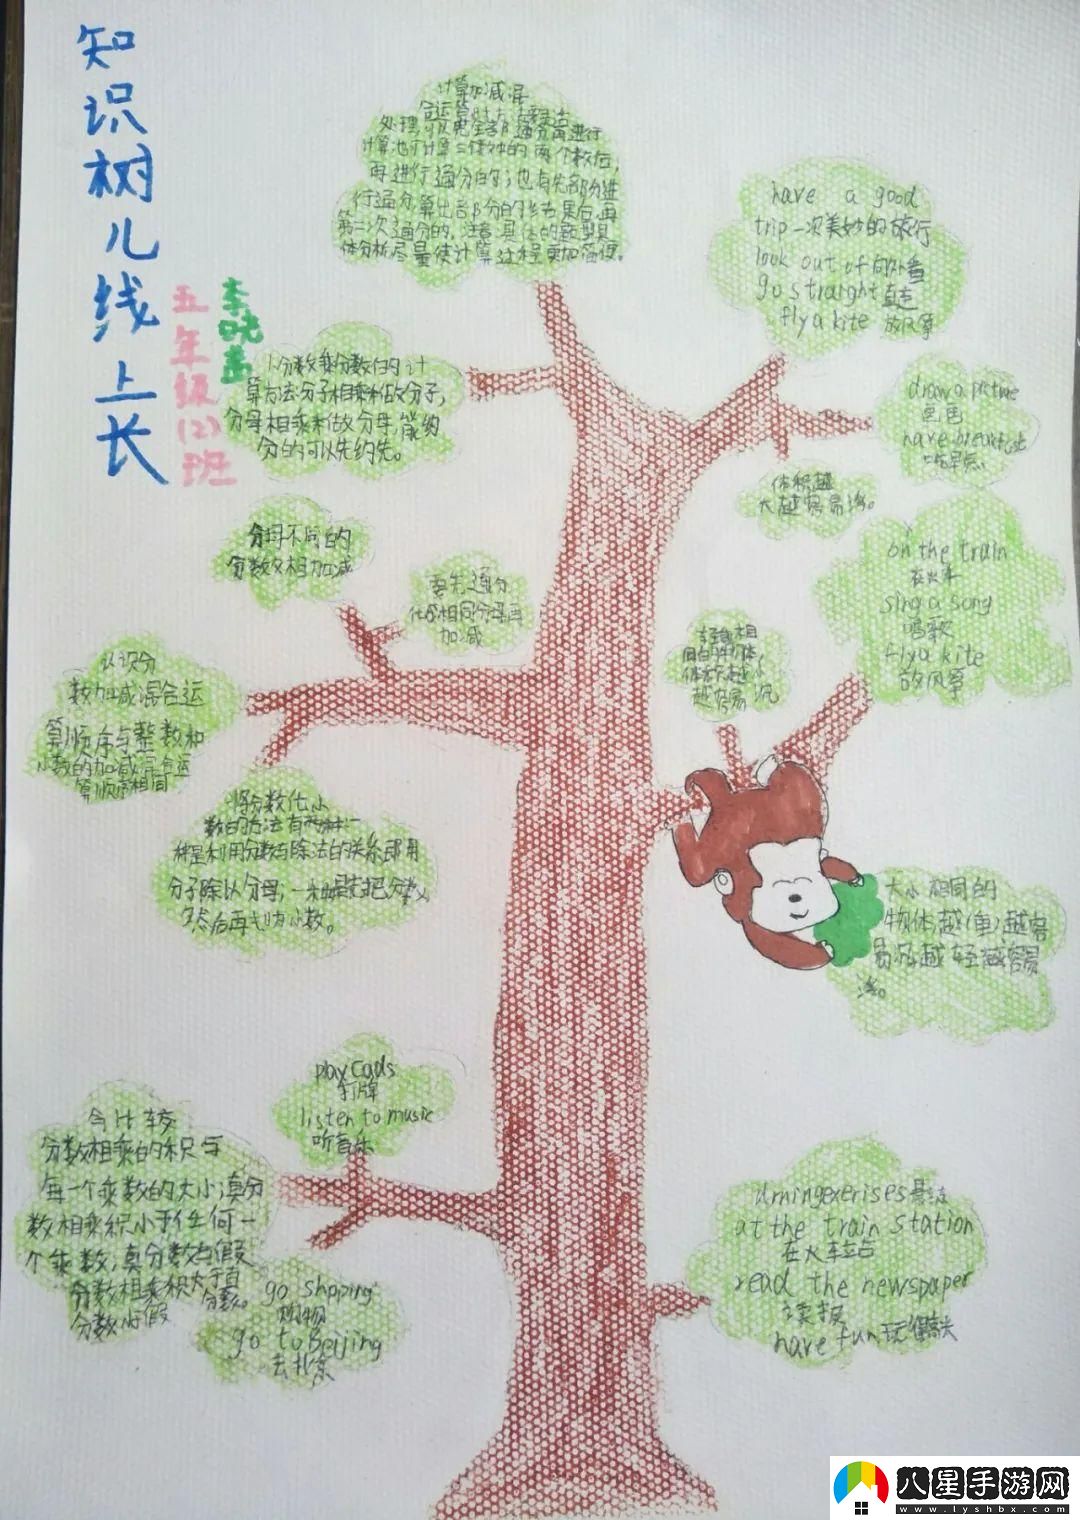 知识树儿线上长
五年级(2)班
计算加减混
合运算时
处理可以先全部通分再进行
计算也可计算二体种的两个数后,
再进行通分的;也有先部分进
行通分,算出部分的结果后,再
第二次通分的。注意具体的题型具
体分析尽量使计算过程更加简便。
have a good
trip一次美妙的旅行
look out of向外看
go straight直走
fly a kite 放风筝
分数乘分数的计
算方法分子相乘积做分子,
分母相乘积做分母,能约
分的可以先约先。
draw a picture
画画
have breakfast
吃早点
体积越
大越容易浮。
分母不同的
分数相加减
要先通分
化成相同分母再
加减
on the train
在火车
sing a song
唱歌
fly a kite
放风筝
轻重相
同的物体,
体积越小
越容易沉
认识分
数加减混合运
算顺序与整数和
小数的加减混合运
算顺序相同
将分数化小
数的方法有两种一
种是利用分数与除法的关系即用
分子除以分母;一种是先把分数
然后再化为小数。
大小相同的
物体越(重)越容
易沉越轻越容易
浮。
play cads
打牌
listen to music
听音乐
今比较
分数相乘的积与
每一个乘数的大小;真分
数相乘积小于任何一
个乘数;真分数与假
分数相乘积大于真
分数。
分数小假
go shpping
购物
go to Beijing
去北京
at the train station
在火车站
read the newspaper
读报
have fun玩得高兴
八星手游网
www.lyshbx.com